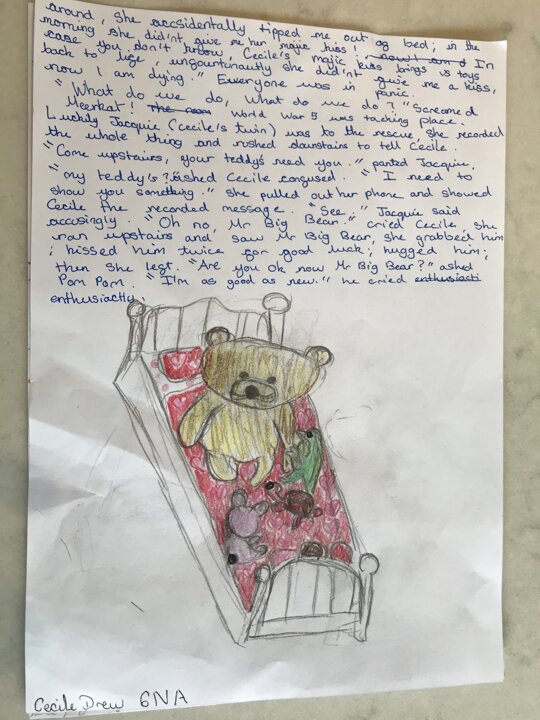 around, she accsidentally tipped me out of bed; in the
morning she did'nt give me her majic kiss! In
case you don't know Cecile's majic kiss brings us toys
back to life, ungourtunatly she did'nt give me a kiss,
now I am dying." Everyone was in panic.
"What do we do, What do we do?" Screamed
Meerkat! The room World War 5 was taching place.
Luckily Jacquie (Cecile's twin) was to the rescue, she recorded
the whole thing and rushed downstairs to tell Cecile.
"Come upstairs, your teddys need you." panted Jacquie,
"my teddy's? ashed Cecile congused. "I need to
show you something." she pulled out her phone and showed
Cecile the recorded message. "See," Jacquie said
accusingly. "Oh no, Mr Big Bear." cried Cecile, she
ran upstairs and saw Mr Big Bear, she grabbed him
; kissed him twice for good luck; hugged him;
then she left. "Are you ok now Mr Big Bear?" ashed
Pom Pom. "I'm as good as new." he cried enthusiasti
enthusiactly.
Cecile Drew 6NA